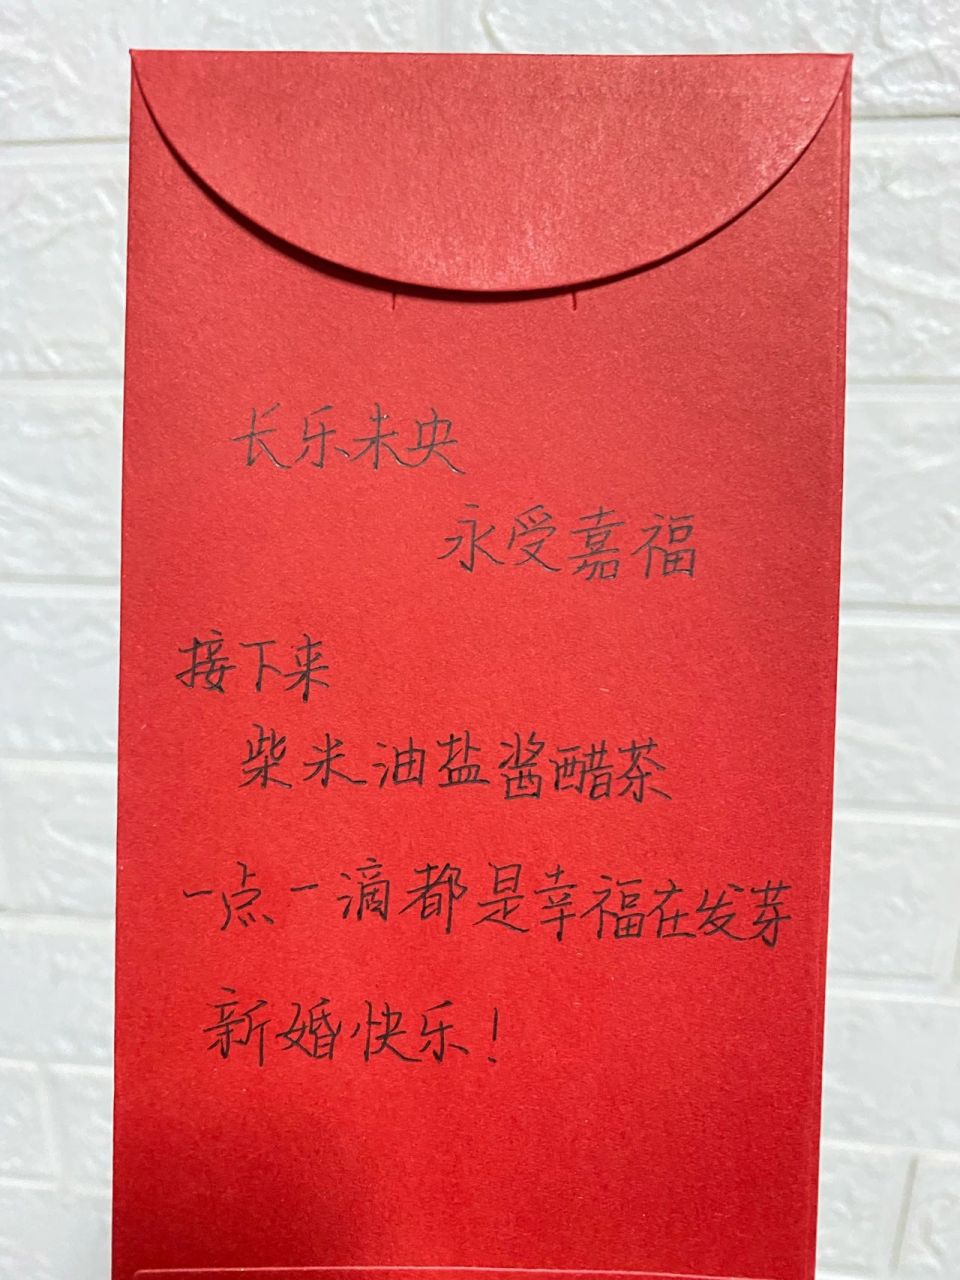 长乐未央
永受嘉福
接下来
柴米油盐酱醋茶
一点一滴都是幸福在发芽
新婚快乐！